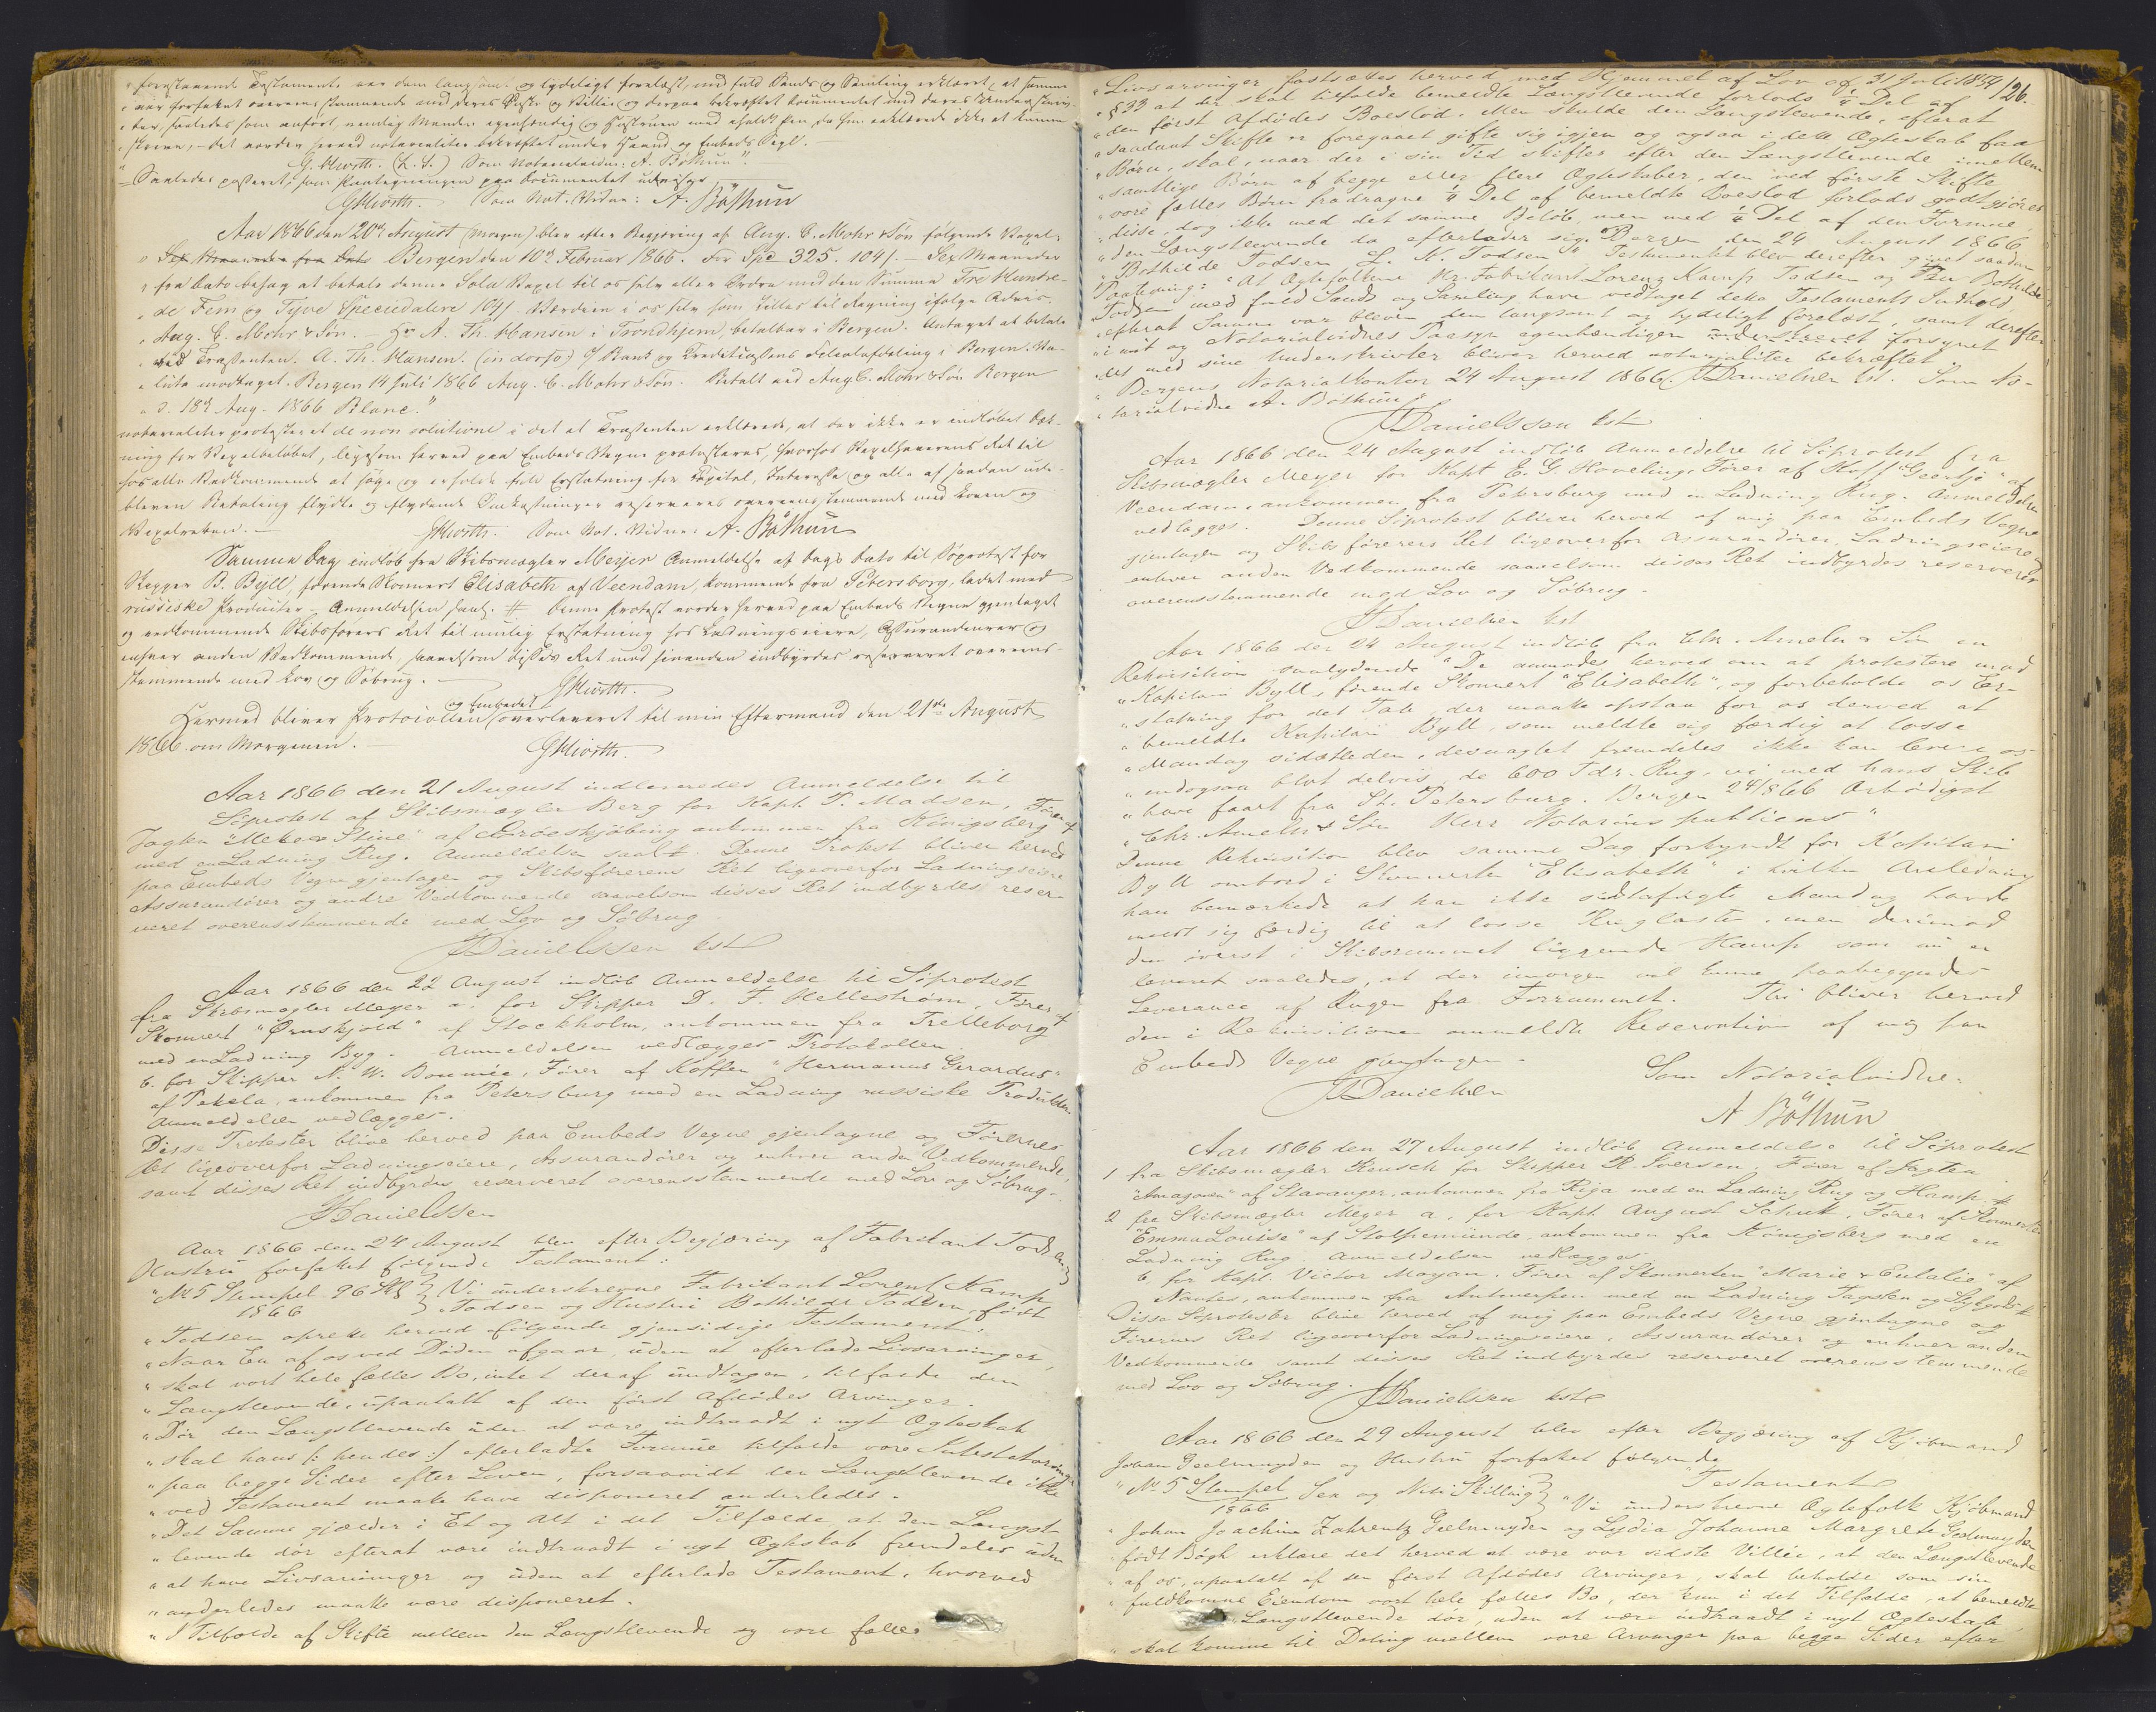 "forestaaende Testamente var dem langsomt og tydeligt forelæst, med fuld Sands og Samling erklæret, at samme
"var forfattet overensstemmende med deres Ønske og Villie og derpaa bekræftet Documentet med deres Underskrif-
"ter, saaledes som anført, nemlig Manden egenhændig og Hustruen med paaholdt Pen, da hun erklærede ikke at kunne
"skrive, – det vorder herved notarialiter bekræftet under Haand og Embeds Segl. –
" G. Hiorth. (L. S.) Som Notarialvidne: A. Böthun". –
Saaledes passeret, som Paategningen paa Documentet udviser
GHiorth. Som Not. Vidne: A. Böthun
Aar 1866 den 20de August (Morgen) blev efter Begjæring af Aug. C. Mohr & Søn følgende Vexel:
" Sex Maaneder fra Dato Bergen den 10de Februar 1866. For Spd 325. 104 s. – Sex Maaneder
" fra Dato behag at betale denne Sola Vexel til os selv eller Ordre med den Summa Tre Hundre-
" de Fem og Tyve Speciedalere 104 s. Værdien i os selv som stilles til Regning ifølge Advis.
" Aug. C. Mohr & Søn. – Hr A. Th. Hansen i Trondhjem, betalbar i Bergen. Antaget at betale
" ved Trassenten. A. Th. Hansen. (in dorso) o/ Bank og Creditcassens Filialafdeling i Bergen. Va-
" luta modtaget. Bergen 14 Juli 1866 Aug. C. Mohr & Søn. Betalt ved Aug C. Mohr & Søn Bergen
" d. 18de Aug. 1866 Blanc."
notarialiter protesteret de non solutione i det at Trassenten erklærede, at der ikke er indløbet Dæk-
ning for Vexelbeløbet, ligesom herved paa Embeds Vegne protesteres, hvorfor Vexelhaverens Ret til
hos alle Vedkommende at søge og erholde fuld Erstatning for Capital, Interesse og alle af saadan ude-
bleven Betaling flydte og flydende Omkostninger reserveres overensstemmende med Loven og
Vexelretten. – GHiorth. Som Not. Vidne: A. Böthun
Samme Dag indløb fra Skibsmægler Meyer Anmeldelse af Dags Dato til Søprotest for
Skipper B. Byll, førende Skonnert Elisabeth af Veendam, kommende fra Petersborg, ladet med
russiske Producter – Anmeldelsen saal. # Denne Protest vorder herved paa Embeds Vegne gjentaget
og vedkommende Skibsførers Ret til mulig Erstatning hos Ladningseiere, Assurandeurer og
enhver anden Vedkommende, saavelsom disses Ret mod hinanden indbyrdes reserveret overeens-
stemmende med Lov og Søbrug. – GHiorth.
Hermed bliver Protocollen og Embedet overleveret til min Eftermand den 21de August
1866 om Morgenen. – GHiorth.
Aar 1866 den 21 August indleveredes Anmeldelse til
Söprotest af Skibsmægler Berg for Kapt. P. Madsen, Förer af
Jagten "Meta & Stine" af Aaröeskjöbing ankommen fra Königsberg
med en Ladning Rug. Anmeldelsen saal #. Denne Protest bliver herved
paa Embeds Vegne gjentagen og Skibsförerens Ret ligeoverfor Ladningseiere
Assurandörer og andre Vedkommende saavelsom disses Ret indbyrdes reser-
veret overensstemmende med Lov og Söbrug
JDanielssen kst
Aar 1866 den 22 August indlöb Anmeldelse til Söprotest
fra Skibsmægler Meyer a. for Skipper D. F. Helleström, Förer af
Skonnert "Örnskjold" af Stockholm, ankommen fra Trelleborg
med en Ladning Byg. Anmeldelsen vedlægges Protokollen
b. for Skipper N. W. Boumée, Förer af Koffen "Hermanus Gerardus"
af Pekela, ankommen fra Petersburg med en Ladning russiske Produkter.
Anmeldelsen vedlægges.
Disse Protester blive herved paa Embeds Vegne gjentagne og Förernes
Ret ligeoverfor Ladningseiere, Assurandörer og enhver anden Vedkommende,
samt disses Ret indbyrdes reserveret overensstemmende med Lov og Söbrug.
JDanielssen
Aar 1866 den 24 August blev efter Begjæring af Fabrikant Todsen og
Hustru forfattet fölgende Testament:
"No 5 Stempel 96 Sk Vi underskrevne Fabrikant Lorens Kamp
1866 Todsen og Hustru Bothilde Todsen, födt
"Todsen oprette herved fölgende gjensidige Testament:
"Naar En af os ved Döden afgaar, uden at efterlade Livsarvinger,
"skal vort hele fælles Bo, intet deraf undtagen, tilfalde den
"Længstlevende, upaatalt af den först Afdödes Arvinger.
"Dör den Længstlevende uden at være indtraadt i nyt Ægteskab
"skal hans /: hendes :/ efterladte Formue tilfalde vore Intestatarvinger
"paa begge Sider efter Loven, forsaavidt den Længstlevende ikke
"ved Testament maatte have disponeret anderledes.
"Det Samme gjælder i Et og Alt i det Tilfælde at den Længst-
"levende dör efterat være indtraadt i nyt Ægteskab fremdeles uden
"at have Livsarvinger og uden at efterlade Testament, hvorved
"anderledes maatte være disponeret.
"I Tilfælde af Skifte mellem den Længstlevende og vore fælles
126.
"Livsarvinger fastsættes herved med Hjemmel af Lov af 31 Juli 1854
"§ 33 at der skal tilfalde bemeldte Længstlevende forlods 1/4 Del af
"den först Afdödes Boeslod. Men skulde den Længstlevende, efterat
"saadant Skifte er foregaaet gifte sig igjen og ogsaa i dette Ægteskab faa
"Börn, skal, naar der i sin Tid skiftes efter den Længstlevende imellem
"samtlige Börn af begge eller flere Ægteskaber, den ved förste Skifte
"vore fælles Börn fradragne 1/4 Del af bemeldte Boeslod forlods godtgjöres
"disse, dog ikke med det samme Belöb, men med 1/4 Del af den Formue,
"den Længstlevende da efterlader sig. Bergen den 24 August 1866
"Bothilde Todsen L. K. Todsen" Testamentet blev derefter givet saadan
Paategning: "At Ægtefolkene Hr. Fabrikant Lorenz Kamp Todsen og Fru Bothilde
Todsen med fuld Sands og Samling have vedtaget dette Testaments Indhold
"efterat Samme var bleven dem langsomt og tydeligt forelæst, samt derefter
"i mit og Notarialvidnes Paasyn egenhændigen forsynet
"det med sine Underskrivter bliver herved notarialiter bekræftet
"Bergens Notarialkontor 24 August 1866. JDanielssen kst. Som No-
"tarialvidne A. Böthun"
JDanielssen kst
Aar 1866 den 24 August indlöb Anmeldelse til Söprotest fra
Skibsmægler Meyer for Kapt E. G. Hoveling, Förer af Koff af
Veendam ankommen fra Petersburg med en Ladning Rug. Anmeldelsen
vedlægges. Denne Söprotest bliver herved af mig paa Embeds Vegne
gjentagen og Skibsförerens Ret ligeoverfor Assurandörer, Ladningseiere
enhver anden Vedkommende saavelsom disses Ret indbyrdes reserveres
overensstemmende med Lov og Söbrug.
JDanielssen kst
Aar 1866 den 24 August indlöb fra Chr. Ameln & Sön en
Rekvisition saalydende "De anmodes herved om at protestere mod
"Kapitain Byll, förende Skonnert "Elisabeth", og forbeholde os Er-
"statning for det Tab der maatte opstaa for os derved at
"bemeldte Kapitain Byll, som meldte sig færdig at losse
"Mandag sidstleden, desuagtet fremdeles ikke kan levere os
"endogsaa blot delvis, de 600 Tdr. Rug, vi med hans Skib
"have faaet fra St. Petersburg. Bergen 24/8 66 Ærbödigst
"Chr. Ameln & Sön Herr Notarius publicus"
Denne Rekvisition blev samme Dag forkyndt for Kapitain
Byll ombord i Skonnerten "Elisabeth" i hvilken Anledning
han bemærkede at han ikke sidstafvigte Mandag havde
meldt sig færdig til at losse Ruglasten, men derimod
den överst i Skibsrummet liggende Hamp som nu er
leveret saaledes, at der imorgen vil kunne paabegyndes
Leverance af Rugen fra Forrummet. Thi bliver herved
den i Rekvisitionen ommeldte Reservation af mig paa
Embeds Vegne gjentagen.
JDanielssen Som Notarialvidne.
A Böthun
Aar 1866 den 27 August indlöb Anmeldelse til Söprotest
1 fra Skibsmægler Reusch for Skipper R. Iversen, Förer af Jagten
"Amagonen" af Stavanger, ankommen fra Riga med en Ladning Rug og Hamp #
2 fra Skibsmægler Meyer a. for Kapt. August Schuk, Förer af Skonnerten
"Emma Louise" af Stolpemünde, ankommen fra Königsberg med en
Ladning Rug. Anmeldelsen vedlægges
b. for Kapt. Victor Moyan, Förer af Skonnerten "Marie & Eulalie" af
Nantes, ankommen fra Antwerpen med en Ladning Tagsten og Stykgods #
Disse Söprotester blive herved af mig paa Embeds Vegne gjentagne og
Förernes Ret ligeoverfor Ladningseiere, Assurandörer og enhver anden
Vedkommende samt disses Ret indbyrdes reserveret overensstemmende
med Lov og Söbrug. JDanielssen kst
Aar 1866 den 29 August blev efter Begjæring af Kjöbmand
Johan Geelmuyden og Hustru forfattet fölgende
Testament
"No 5 Stempel Sex og Niti Skilling "Vi underskrevne Ægtefolk Kjöbmand
1866
"Johan Joachim Zahrentz Geelmuyden og Lydia Johanne Margrete Geelmuyden
"födt Bögh erklære det herved at være vor sidste Villie, at den Længstlevende
"af os, upaatalt af den först Afdödes Arvinger, skal beholde som sin
"fuldkomne Eiendom vort hele fælles Bo, der kun i det Tilfælde, at bemeldte
"Længstlevende dör, uden at være indtraadt i nyt Ægteskab,
"skal komme til Deling mellem vore Arvinger paa begge Sider efter